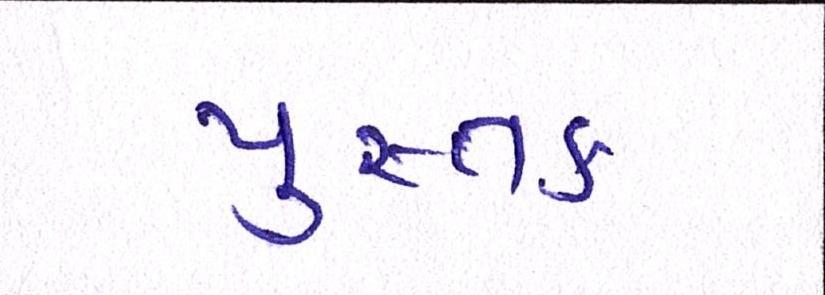 પુસ્તક